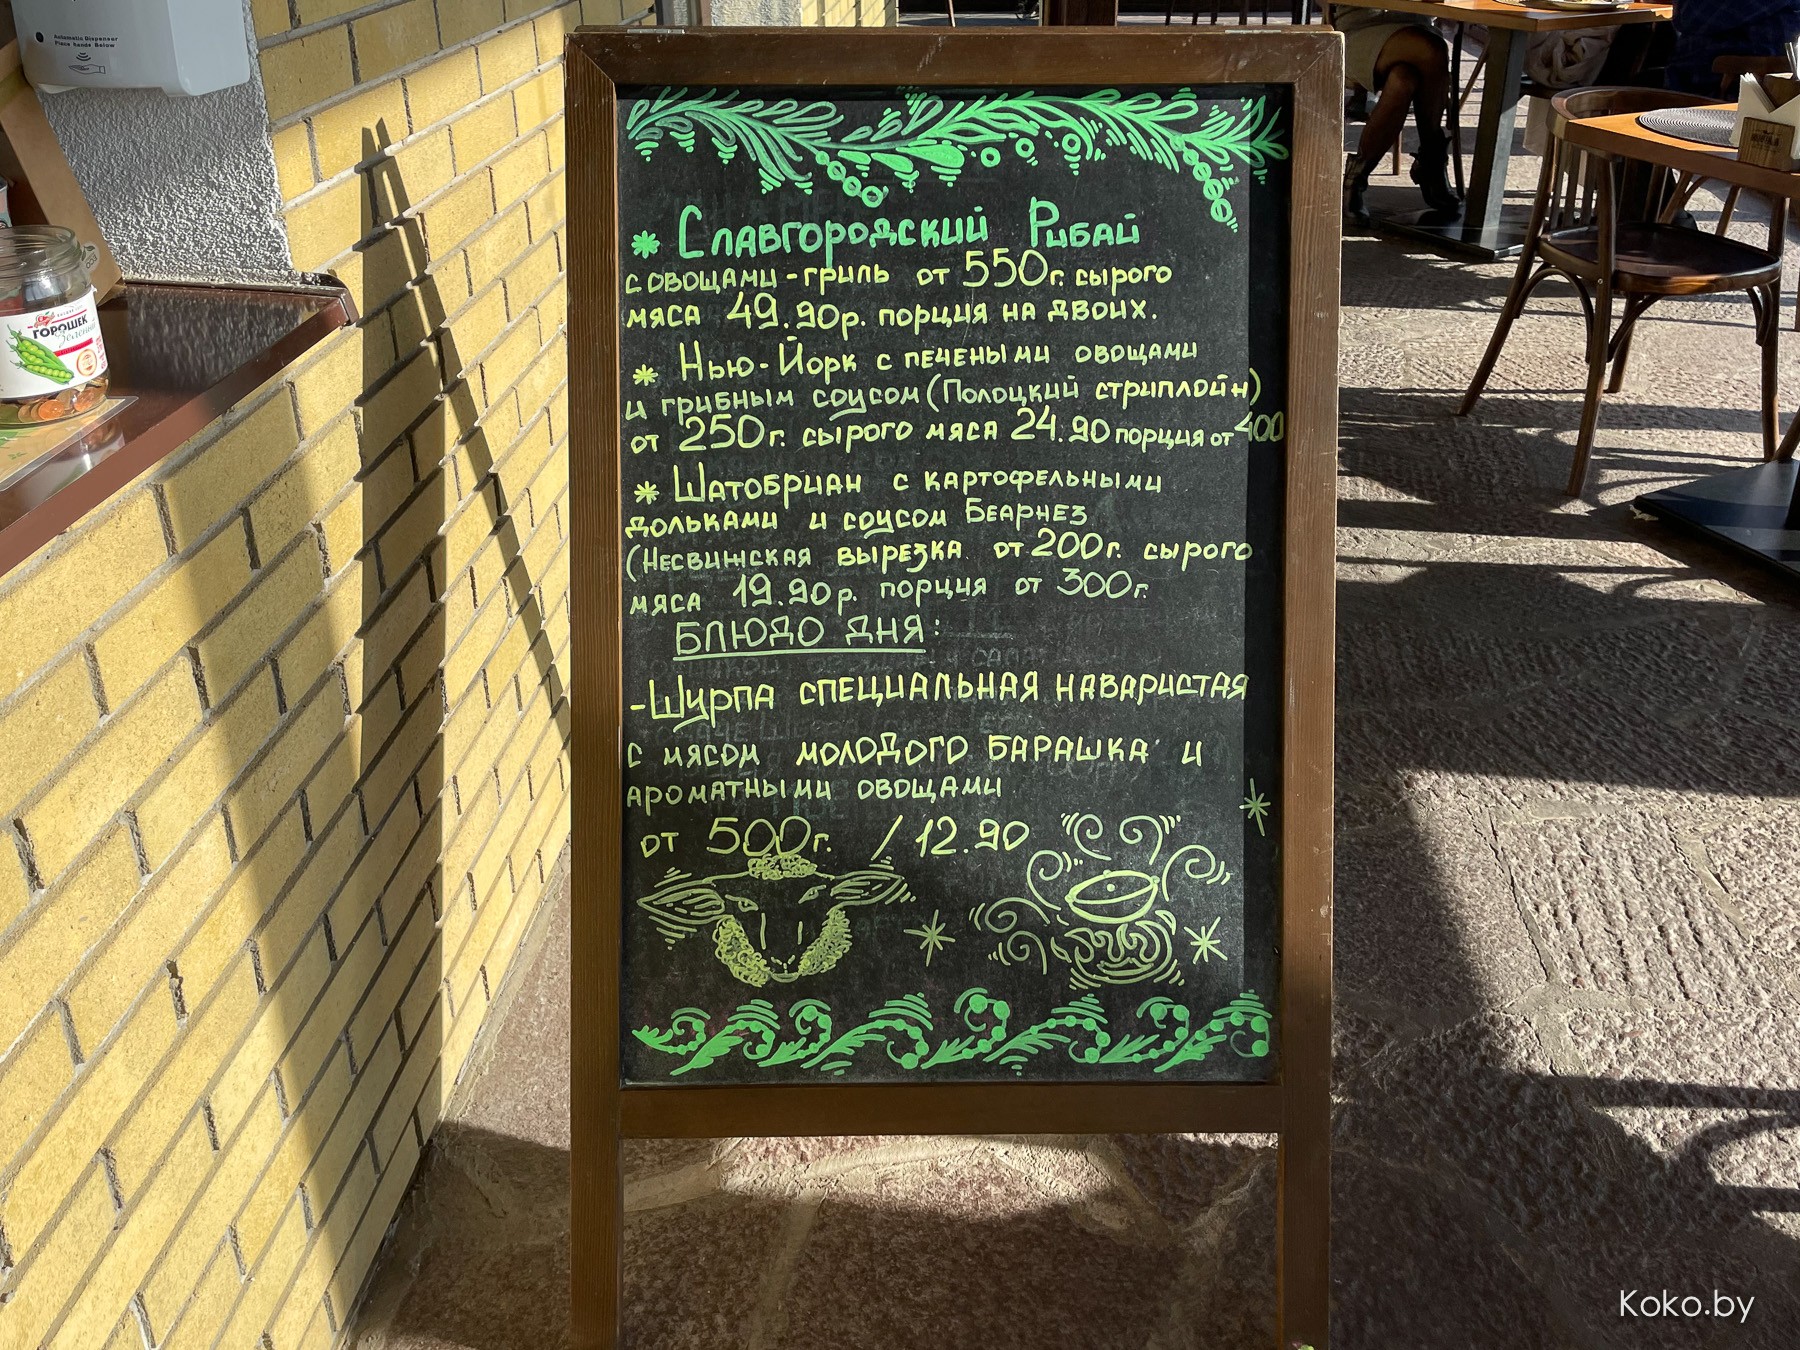 Automatic Dispenser
Place hands Below
ГОРОШЕК
Зеленый
* Славгородский Рибай
с овощами-гриль от 550г. сырого
мяса 49.90р. порция на двоих.
* Нью-Йорк с печеными овощами
и грибным соусом (Полоцкий стриплойн)
от 250г. сырого мяса 24.90 порция от 400
* Шатобриан с картофельными
дольками и соусом Беарнез
(Несвижская вырезка от 200г. сырого
мяса 19.90р. порция от 300г.
БЛЮДО ДНЯ:
-Шурпа специальная наваристая
с мясом молодого барашка и
ароматными овощами
от 500г. / 12.90
Koko.by